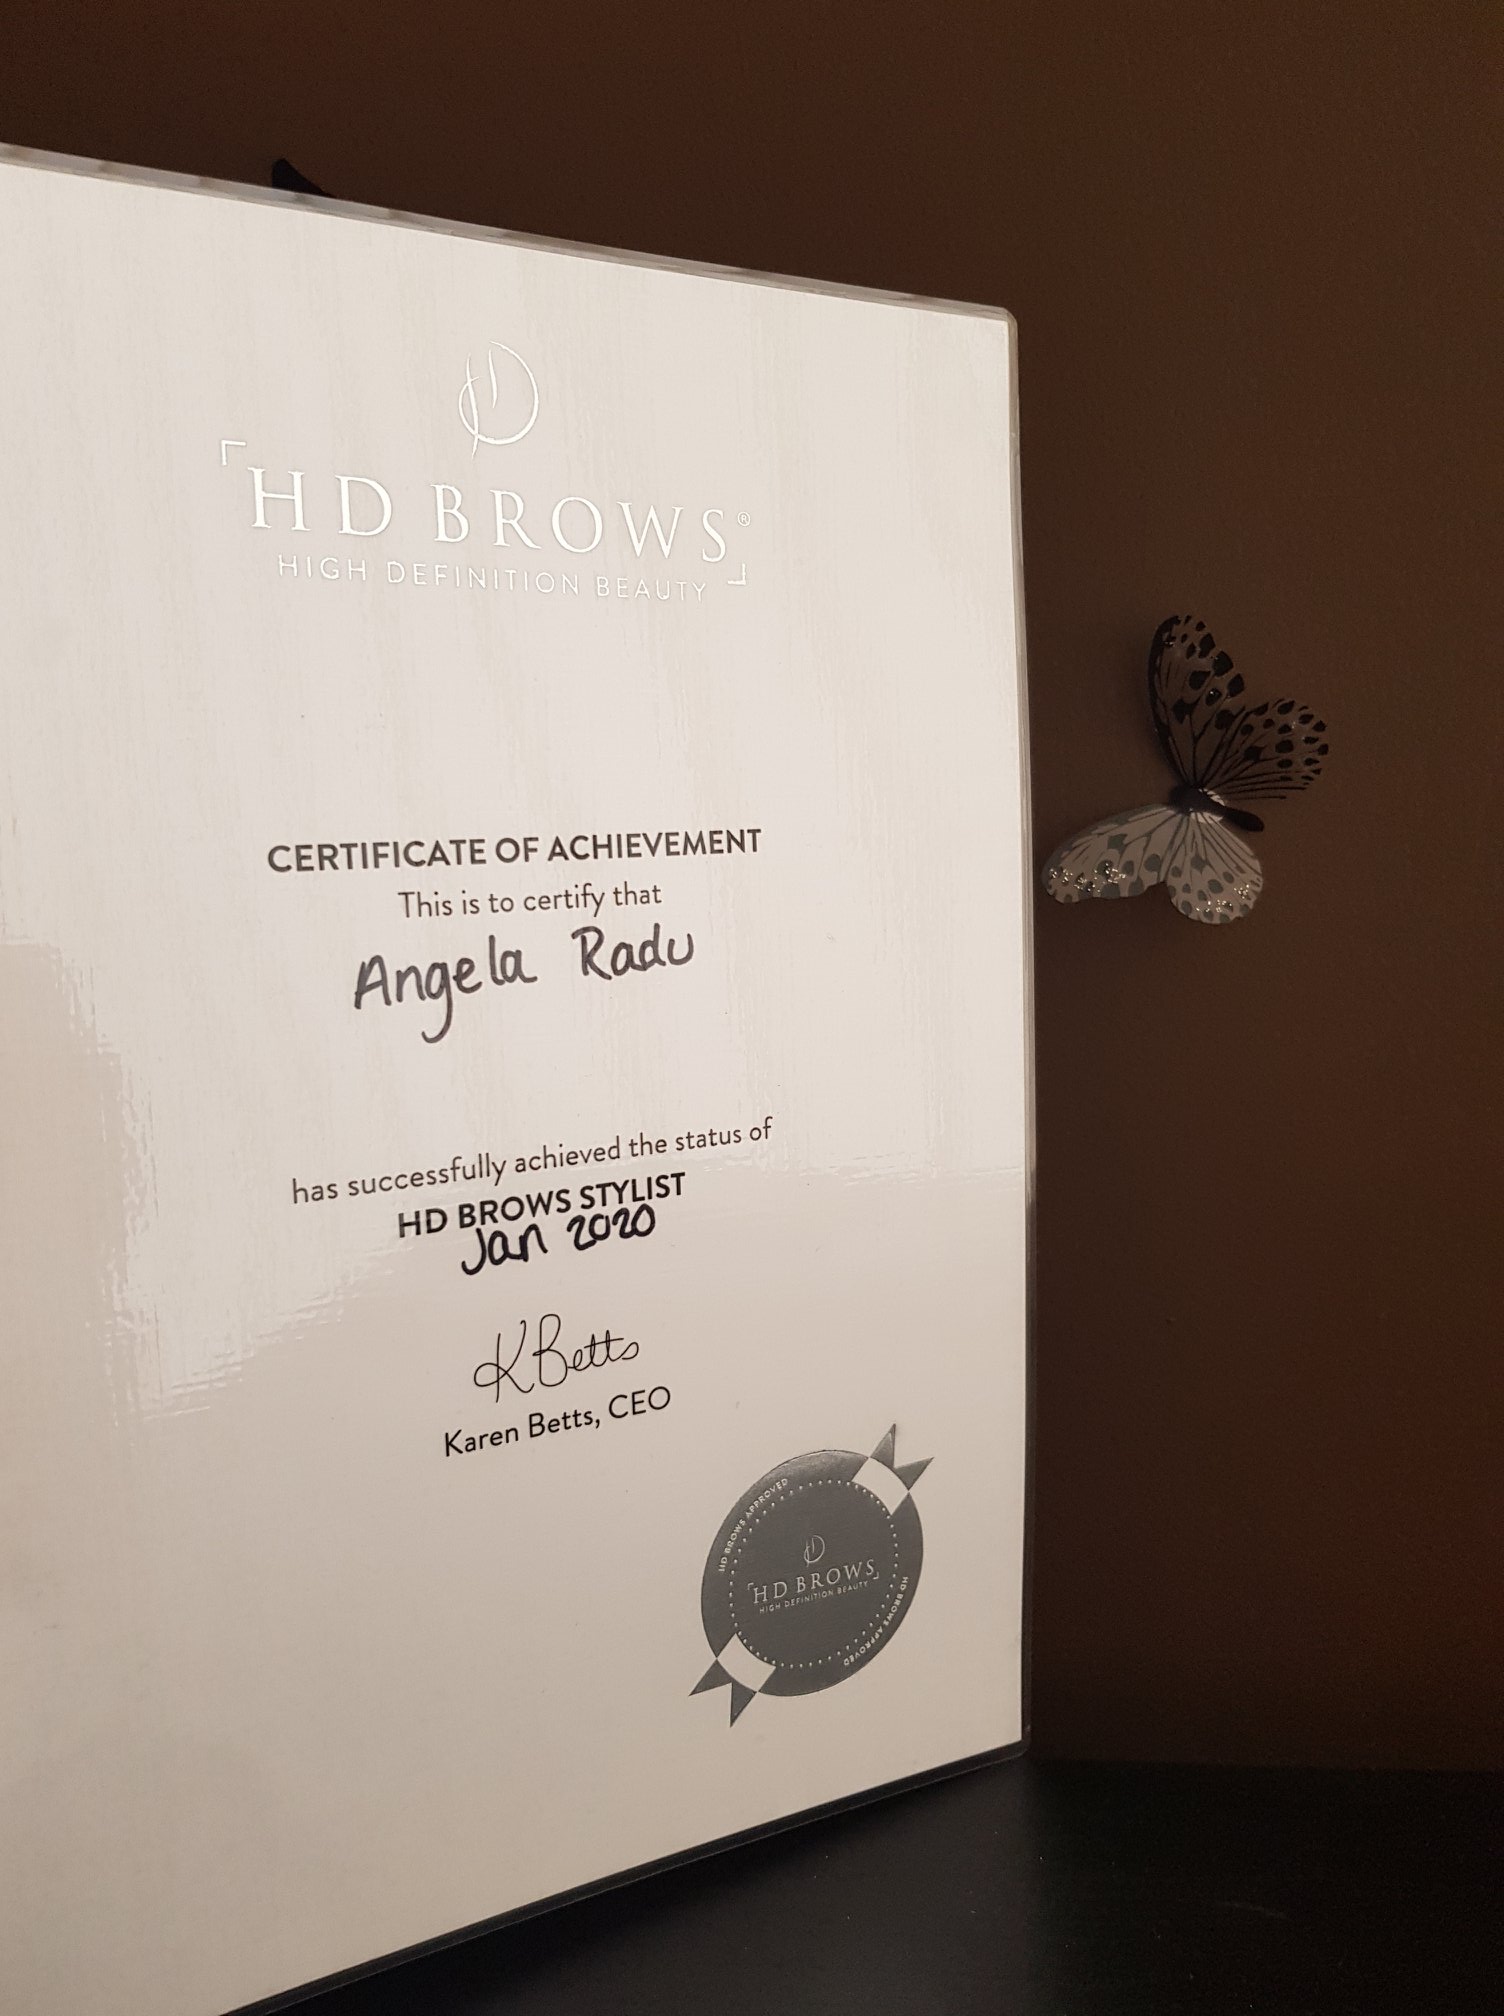 HD BROWS®
HIGH DEFINITION BEAUTY
CERTIFICATE OF ACHIEVEMENT
This is to certify that
Angela Radu
has successfully achieved the status of
HD BROWS STYLIST
Jan 2020
K Betts
Karen Betts, CEO
HD BROWS APPROVED
HD BROWS
HIGH DEFINITION BEAUTY
HD BROWS APPROVED